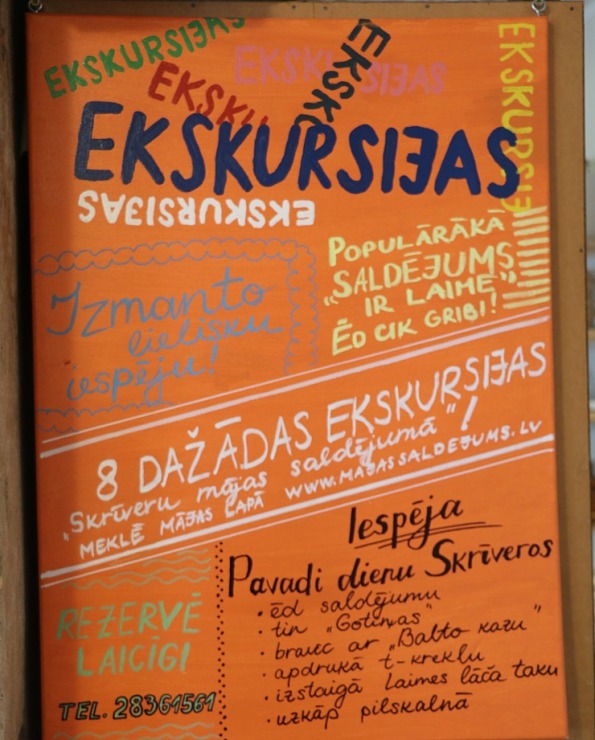 EKSKURSIJAS
EKSKU
EKSKURSIJAS
EKSK
EKSKURSIJ
EKSKURSIJAS
EKSKURSIJAS
POPULĀRĀKĀ
"SALDĒJUMS
IR LAIME"
ĒD CIK GRIBI!
Izmanto
lielisku
iespēju!
8 DAŽĀDAS EKSKURSIJAS
"Skrīveru mājas saldējumā"!
MEKLĒ MĀJAS LAPĀ WWW.MAJASSALDEJUMS.LV
Iespēja
Pavadi dienu Skrīveros
· ēd saldējumu
· tin „Gotiņas"
· brauc ar „Balto kazu"
· apdrukā t-kreklu
· izstaigā Laimes lāča taku
· uzkāp pilskalnā
REZERVĒ
LAICĪGI
TEL. 28361561